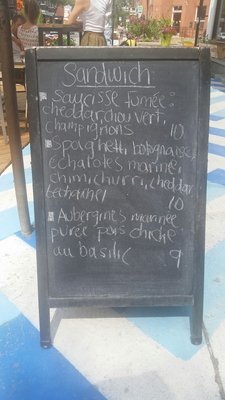 Sandwich
Saucisse fumée:
cheddar, chou vert,
champignons 10
Spaghetti bolognaise,
échalotes mariné,
chimichurri, cheddar
béchamel 10
Aubergines marinée
purée pois chiche
au basilic 9